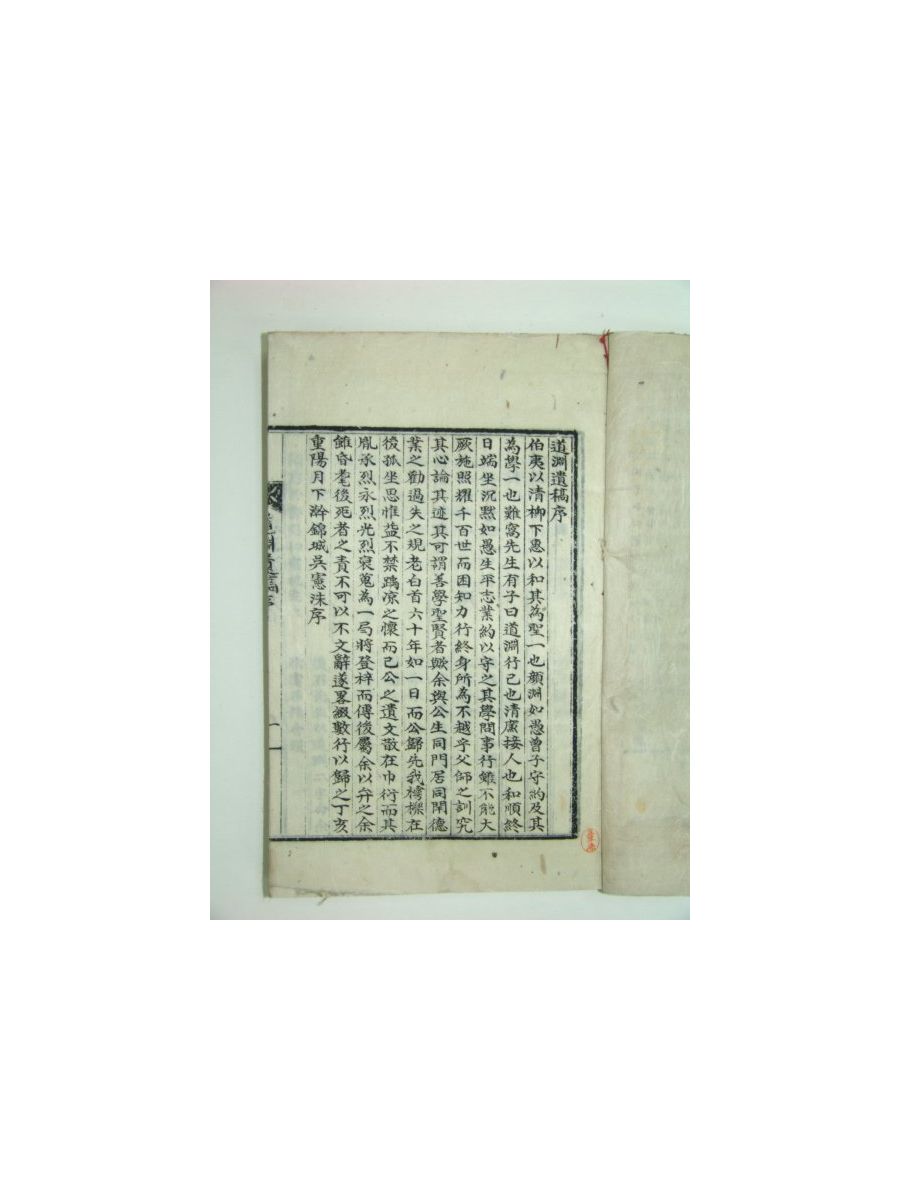 道淵遺稿序
伯夷以清柳下惠以和其為聖一也顔淵如愚曾子守約及其
為學一也難窩先生有子曰道淵行己也清廉接人也和順終
日端坐沉黙如愚生平志業約以守之其學問事行縱不能大
厥施照耀千百世而困知力行終身所為不越乎父師之訓究
其心論其迹其可謂善學聖賢者歟余與公生同門居同閈德
業之勸過失之規老白首六十年如一日而公歸先我樗樑在
後孤坐思惟益不禁踽凉之懷而已公之遺文散在巾衍而其
胤承烈永烈光烈裒蒐為一局將登梓而傳後屬余以弁之余
雖昏耄後死者之責不可以不文辭遂畧綴數行以歸之丁亥
重陽月下澣錦城吳憲洙序
道淵遺稿序
一